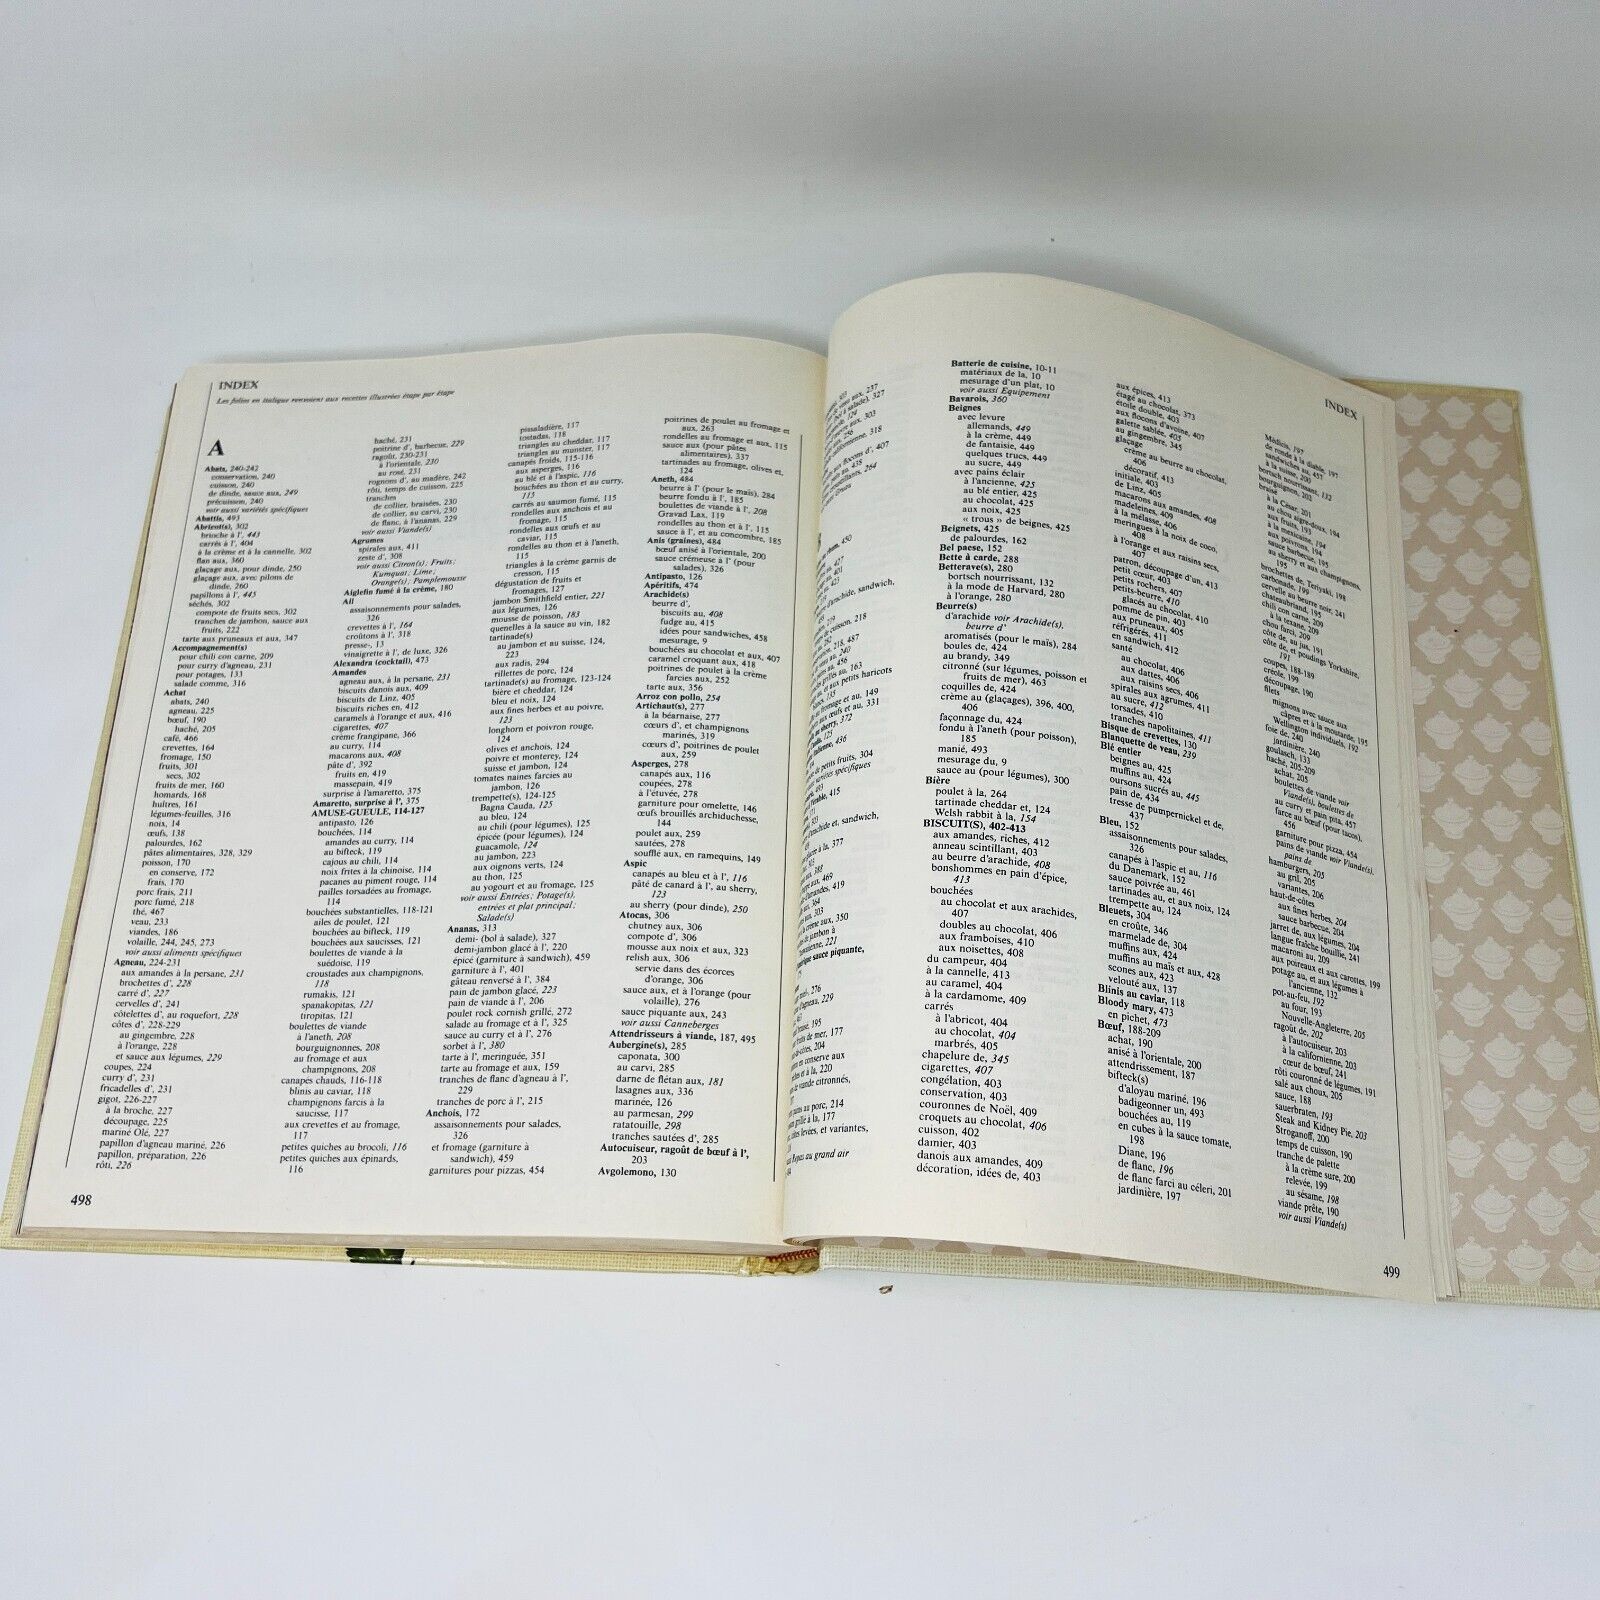 INDEX
Les folios en italique renvoient aux recettes illustrées étape par étape
A
Abats, 240-242
conservation, 240
cuisson, 240
de dinde, sauce aux, 249
précuisson, 240
voir aussi variétés spécifiques
Abattis, 493
Abricot(s), 302
brioche à l', 443
carrés à l', 404
à la crème et à la cannelle, 302
flan aux, 360
glaçage aux, pour dinde, 250
glaçage aux, avec pilons de
dinde, 260
papillons à l', 445
séchés, 302
compote de fruits secs, 302
tranches de jambon, sauce aux
fruits, 222
tarte aux pruneaux et aux, 347
Accompagnement(s)
pour chili con carne, 209
pour curry d'agneau, 231
pour potages, 133
salade comme, 316
Achat
abats, 240
agneau, 225
bœuf, 190
haché, 205
café, 466
crevettes, 164
fromage, 150
fruits, 301
secs, 302
fruits de mer, 160
homards, 168
huîtres, 161
légumes-feuilles, 316
noix, 14
œufs, 138
palourdes, 162
pâtes alimentaires, 328, 329
poisson, 170
en conserve, 172
frais, 170
porc frais, 211
porc fumé, 218
thé, 467
veau, 233
viandes, 186
volaille, 244, 245, 273
voir aussi aliments spécifiques
Agneau, 224-231
aux amandes à la persane, 231
brochettes d', 228
carré d', 227
cervelles d', 241
côtelettes d', au roquefort, 228
côtes d', 228-229
au gingembre, 228
à l'orange, 228
et sauce aux légumes, 229
coupes, 224
curry d', 231
fricadelles d', 231
gigot, 226-227
à la broche, 227
découpage, 225
mariné Olé, 227
papillon d'agneau mariné, 226
papillon, préparation, 226
rôti, 226
haché, 231
poitrine d', barbecue, 229
ragoût, 230-231
à l'orientale, 230
au rosé, 231
rognons d', au madère, 242
rôti, temps de cuisson, 225
tranches
de collier, braisées, 230
de collier, au carvi, 230
de flanc, à l'ananas, 229
voir aussi Viande(s)
Agrumes
spirales aux, 411
zeste d', 308
voir aussi Citron(s); Fruits;
Kumquat; Lime;
Orange(s); Pamplemousse
Aiglefin fumé à la crème, 180
Ail
assaisonnements pour salades,
326
crevettes à l', 164
croûtons à l', 318
presse-, 13
vinaigrette à l', de luxe, 326
Alexandra (cocktail), 473
Amandes
agneau aux, à la persane, 231
biscuits danois aux, 409
biscuits de Linz, 405
biscuits riches en, 412
caramels à l'orange et aux, 416
cigarettes, 407
crème frangipane, 366
au curry, 114
macarons aux, 408
pâte d', 392
fruits en, 419
massepain, 419
surprise à l'amaretto, 375
Amaretto, surprise à l', 375
AMUSE-GUEULE, 114-127
antipasto, 126
bouchées, 114
amandes au curry, 114
au bifteck, 119
cajous au chili, 114
noix frites à la chinoise, 114
pacanes au piment rouge, 114
pailles torsadées au fromage,
114
bouchées substantielles, 118-121
ailes de poulet, 121
bouchées au bifteck, 119
bouchées aux saucisses, 121
boulettes de viande à la
suédoise, 119
croustades aux champignons,
118
rumakis, 121
spanakopitas, 121
tiropitas, 121
boulettes de viande
à l'aneth, 208
bourguignonnes, 208
au fromage et aux
champignons, 208
canapés chauds, 116-118
blinis au caviar, 118
champignons farcis à la
saucisse, 117
aux crevettes et au fromage,
117
petites quiches au brocoli, 116
petites quiches aux épinards,
116
pissaladière, 117
tostadas, 118
triangles au cheddar, 117
triangles au munster, 117
canapés froids, 115-116
aux asperges, 116
au blé et à l'aspic, 116
bouchées au thon et au curry,
115
carrés au saumon fumé, 115
rondelles aux anchois et au
fromage, 115
rondelles aux œufs et au
caviar, 115
rondelles au thon et à l'aneth,
115
triangles à la crème garnis de
cresson, 115
dégustation de fruits et
fromages, 127
jambon Smithfield entier, 221
aux légumes, 126
mousse de poisson, 183
quenelles à la sauce au vin, 182
tartinade(s)
au jambon et au suisse, 124,
223
aux radis, 294
rillettes de porc, 124
tartinade(s) au fromage, 123-124
bière et cheddar, 124
bleu et noix, 124
aux fines herbes et au poivre,
123
longhorn et poivron rouge,
124
olives et anchois, 124
poivre et monterey, 124
suisse et jambon, 124
tomates naines farcies au
jambon, 126
trempette(s), 124-125
Bagna Cauda, 125
au bleu, 124
au chili (pour légumes), 125
épicée (pour légumes), 124
guacamole, 124
au jambon, 223
aux oignons verts, 124
au thon, 125
au yogourt et au fromage, 125
voir aussi Entrées; Potage(s),
entrées et plat principal;
Salade(s)
Ananas, 313
demi- (bol à salade), 327
demi-jambon glacé à l', 220
épicé (garniture à sandwich), 459
garniture à l', 401
gâteau renversé à l', 384
pain de jambon glacé, 223
pain de viande à l', 206
poulet rock cornish grillé, 272
salade au fromage et à l', 325
sauce au curry et à l', 276
sorbet à l', 380
tarte à l', meringuée, 351
tarte au fromage et aux, 159
tranches de flanc d'agneau à l',
229
tranches de porc à l', 215
Anchois, 172
assaisonnements pour salades,
326
et fromage (garniture à
sandwich), 459
garnitures pour pizzas, 454
poitrines de poulet au fromage et
aux, 263
rondelles au fromage et aux, 115
sauce aux (pour pâtes
alimentaires), 337
tartinades au fromage, olives et,
124
Aneth, 484
beurre à l' (pour le maïs), 284
beurre fondu à l', 185
boulettes de viande à l', 208
Gravad Lax, 119
rondelles au thon et à l', 115
sauce à l', et au concombre, 185
Anis (graines), 484
bœuf anisé à l'orientale, 200
sauce crémeuse à l' (pour
salades), 326
Antipasto, 126
Apéritifs, 474
Arachide(s)
beurre d',
biscuits au, 408
fudge au, 415
idées pour sandwiches, 458
mesurage, 9
bouchées au chocolat et aux, 407
caramel croquant aux, 418
poitrines de poulet à la crème
farcies aux, 252
tarte aux, 356
Arroz con pollo, 254
Artichaut(s), 277
à la béarnaise, 277
cœurs d', et champignons
marinés, 319
cœurs d', poitrines de poulet
aux, 259
Asperges, 278
canapés aux, 116
coupées, 278
à l'étuvée, 278
garniture pour omelette, 146
œufs brouillés archiduchesse,
144
poulet aux, 259
sautées, 278
soufflé aux, en ramequins, 149
Aspic
canapés au bleu et à l', 116
pâté de canard à l', au sherry,
123
au sherry (pour dinde), 250
Atocas, 306
chutney aux, 306
compote d', 306
mousse aux noix et aux, 323
relish aux, 306
servie dans des écorces
d'orange, 306
sauce aux, et à l'orange (pour
volaille), 276
sauce piquante aux, 243
voir aussi Canneberges
Attendrisseurs à viande, 187, 495
Aubergine(s), 285
caponata, 300
au carvi, 285
darne de flétan aux, 181
lasagnes aux, 336
marinée, 126
au parmesan, 299
ratatouille, 298
tranches sautées d', 285
Autocuiseur, ragoût de bœuf à l',
203
Avgolemono, 130
498
INDEX
Batterie de cuisine, 10-11
matériaux de la, 10
mesurage d'un plat, 10
voir aussi Equipement
Bavarois, 360
Beignes
avec levure
allemands, 449
à la crème, 449
de fantaisie, 449
quelques trucs, 449
au sucre, 449
avec pains éclair
à l'ancienne, 425
au blé entier, 425
au chocolat, 425
aux noix, 425
« trous » de beignes, 425
Beignets, 425
de palourdes, 162
Bel paese, 152
Bette à carde, 288
Betterave(s), 280
bortsch nourrissant, 132
à la mode de Harvard, 280
à l'orange, 280
Beurre(s)
d'arachide voir Arachide(s),
beurre d'
aromatisés (pour le maïs), 284
boules de, 424
au brandy, 349
citronné (sur légumes, poisson et
fruits de mer), 463
coquilles de, 424
crème au (glaçages), 396, 400,
406
façonnage du, 424
fondu à l'aneth (pour poisson),
185
manié, 493
mesurage du, 9
sauce au (pour légumes), 300
Bière
poulet à la, 264
tartinade cheddar et, 124
Welsh rabbit à la, 154
BISCUIT(S), 402-413
aux amandes, riches, 412
anneau scintillant, 403
au beurre d'arachide, 408
bonshommes en pain d'épice,
413
bouchées
au chocolat et aux arachides,
407
doubles au chocolat, 406
aux framboises, 410
aux noisettes, 408
du campeur, 404
à la cannelle, 413
au caramel, 404
à la cardamome, 409
carrés
à l'abricot, 404
au chocolat, 404
marbrés, 405
chapelure de, 345
cigarettes, 407
congélation, 403
conservation, 403
couronnes de Noël, 409
croquets au chocolat, 406
cuisson, 402
damier, 403
danois aux amandes, 409
décoration, idées de, 403
aux épices, 413
étagé au chocolat, 373
étoile double, 403
aux flocons d'avoine, 407
galette sablée, 405
au gingembre, 345
glaçage
crème au beurre au chocolat,
406
décoratif, 413
initiale, 403
de Linz, 405
macarons aux amandes, 408
madeleines, 409
à la mélasse, 406
meringues à la noix de coco,
408
à l'orange et aux raisins secs,
407
patron, découpage d'un, 413
petit cœur, 403
petits rochers, 407
petits-beurre, 410
glacés au chocolat, 410
pomme de pin, 403
aux pruneaux, 405
réfrigérés, 411
en sandwich, 412
santé
au chocolat, 406
aux dattes, 406
aux raisins secs, 406
spirales aux agrumes, 411
au sucre, 412
torsades, 410
tranches napolitaines, 411
Bisque de crevettes, 130
Blanquette de veau, 239
Blé entier
beignes au, 425
muffins au, 424
oursons sucrés au, 445
pain de, 434
tresse de pumpernickel et de,
437
Bleu, 152
assaisonnements pour salades,
326
canapés à l'aspic et au, 116
du Danemark, 152
sauce poivrée au, 461
tartinades au, et aux noix, 124
trempette au, 124
Bleuets, 304
en croûte, 346
marmelade de, 304
muffins aux, 424
muffins au maïs et aux, 428
scones aux, 423
velouté aux, 137
Blinis au caviar, 118
Bloody mary, 473
en pichet, 473
Bœuf, 188-209
achat, 190
anisé à l'orientale, 200
attendrissement, 187
bifteck(s)
d'aloyau mariné, 196
badigeonner un, 493
bouchées au, 119
en cubes à la sauce tomate,
198
Diane, 196
de flanc, 196
de flanc farci au céleri, 201
jardinière, 197
Médicis, 197
de ronde à la diable, 197
sandwiches au, 457
à la suisse, 200
bortsch nourrissant, 132
bourguignon, 202
braisé
à la César, 201
au chou aigre-doux, 194
aux fruits, 193
à la mexicaine, 194
aux poivrons, 194
sauce barbecue, 195
au sherry et aux champignons,
195
brochettes de, Teriyaki, 198
carbonade, 199
cervelle au beurre noir, 241
chateaubriand, 195
chili con carne, 209
à la texane, 209
chou farci, 209
côte de, au jus, 191
côte de, et poudings Yorkshire,
191
coupes, 188-189
créole, 199
découpage, 190
filets
mignons avec sauce aux
câpres et à la moutarde, 195
Wellington individuels, 192
foie de, 240
jardinière, 240
goulasch, 133
haché, 205-209
achat, 205
boulettes de viande voir
Viande(s), boulettes de
au curry en pain pita, 457
farce au bœuf (pour tacos),
456
garniture pour pizza, 454
pains de viande voir Viande(s),
pains de
hamburgers, 205
au gril, 205
variantes, 206
haut-de-côtes
aux fines herbes, 204
sauce barbecue, 204
jarret de, aux légumes, 204
langue fraîche bouillie, 241
macaroni au, 209
aux poireaux et aux carottes, 199
potage au, et aux légumes à
l'ancienne, 132
pot-au-feu, 192
au four, 193
Nouvelle-Angleterre, 205
ragoût de, 202
à l'autocuiseur, 203
à la californienne, 203
cœur de bœuf, 241
rôti couronné de légumes, 191
salé aux choux, 205
sauce, 188
sauerbraten, 193
Steak and Kidney Pie, 203
Stroganoff, 200
temps de cuisson, 190
tranche de palette
à la crème sure, 200
relevée, 199
au sésame, 198
viande prête, 190
voir aussi Viande(s)
499